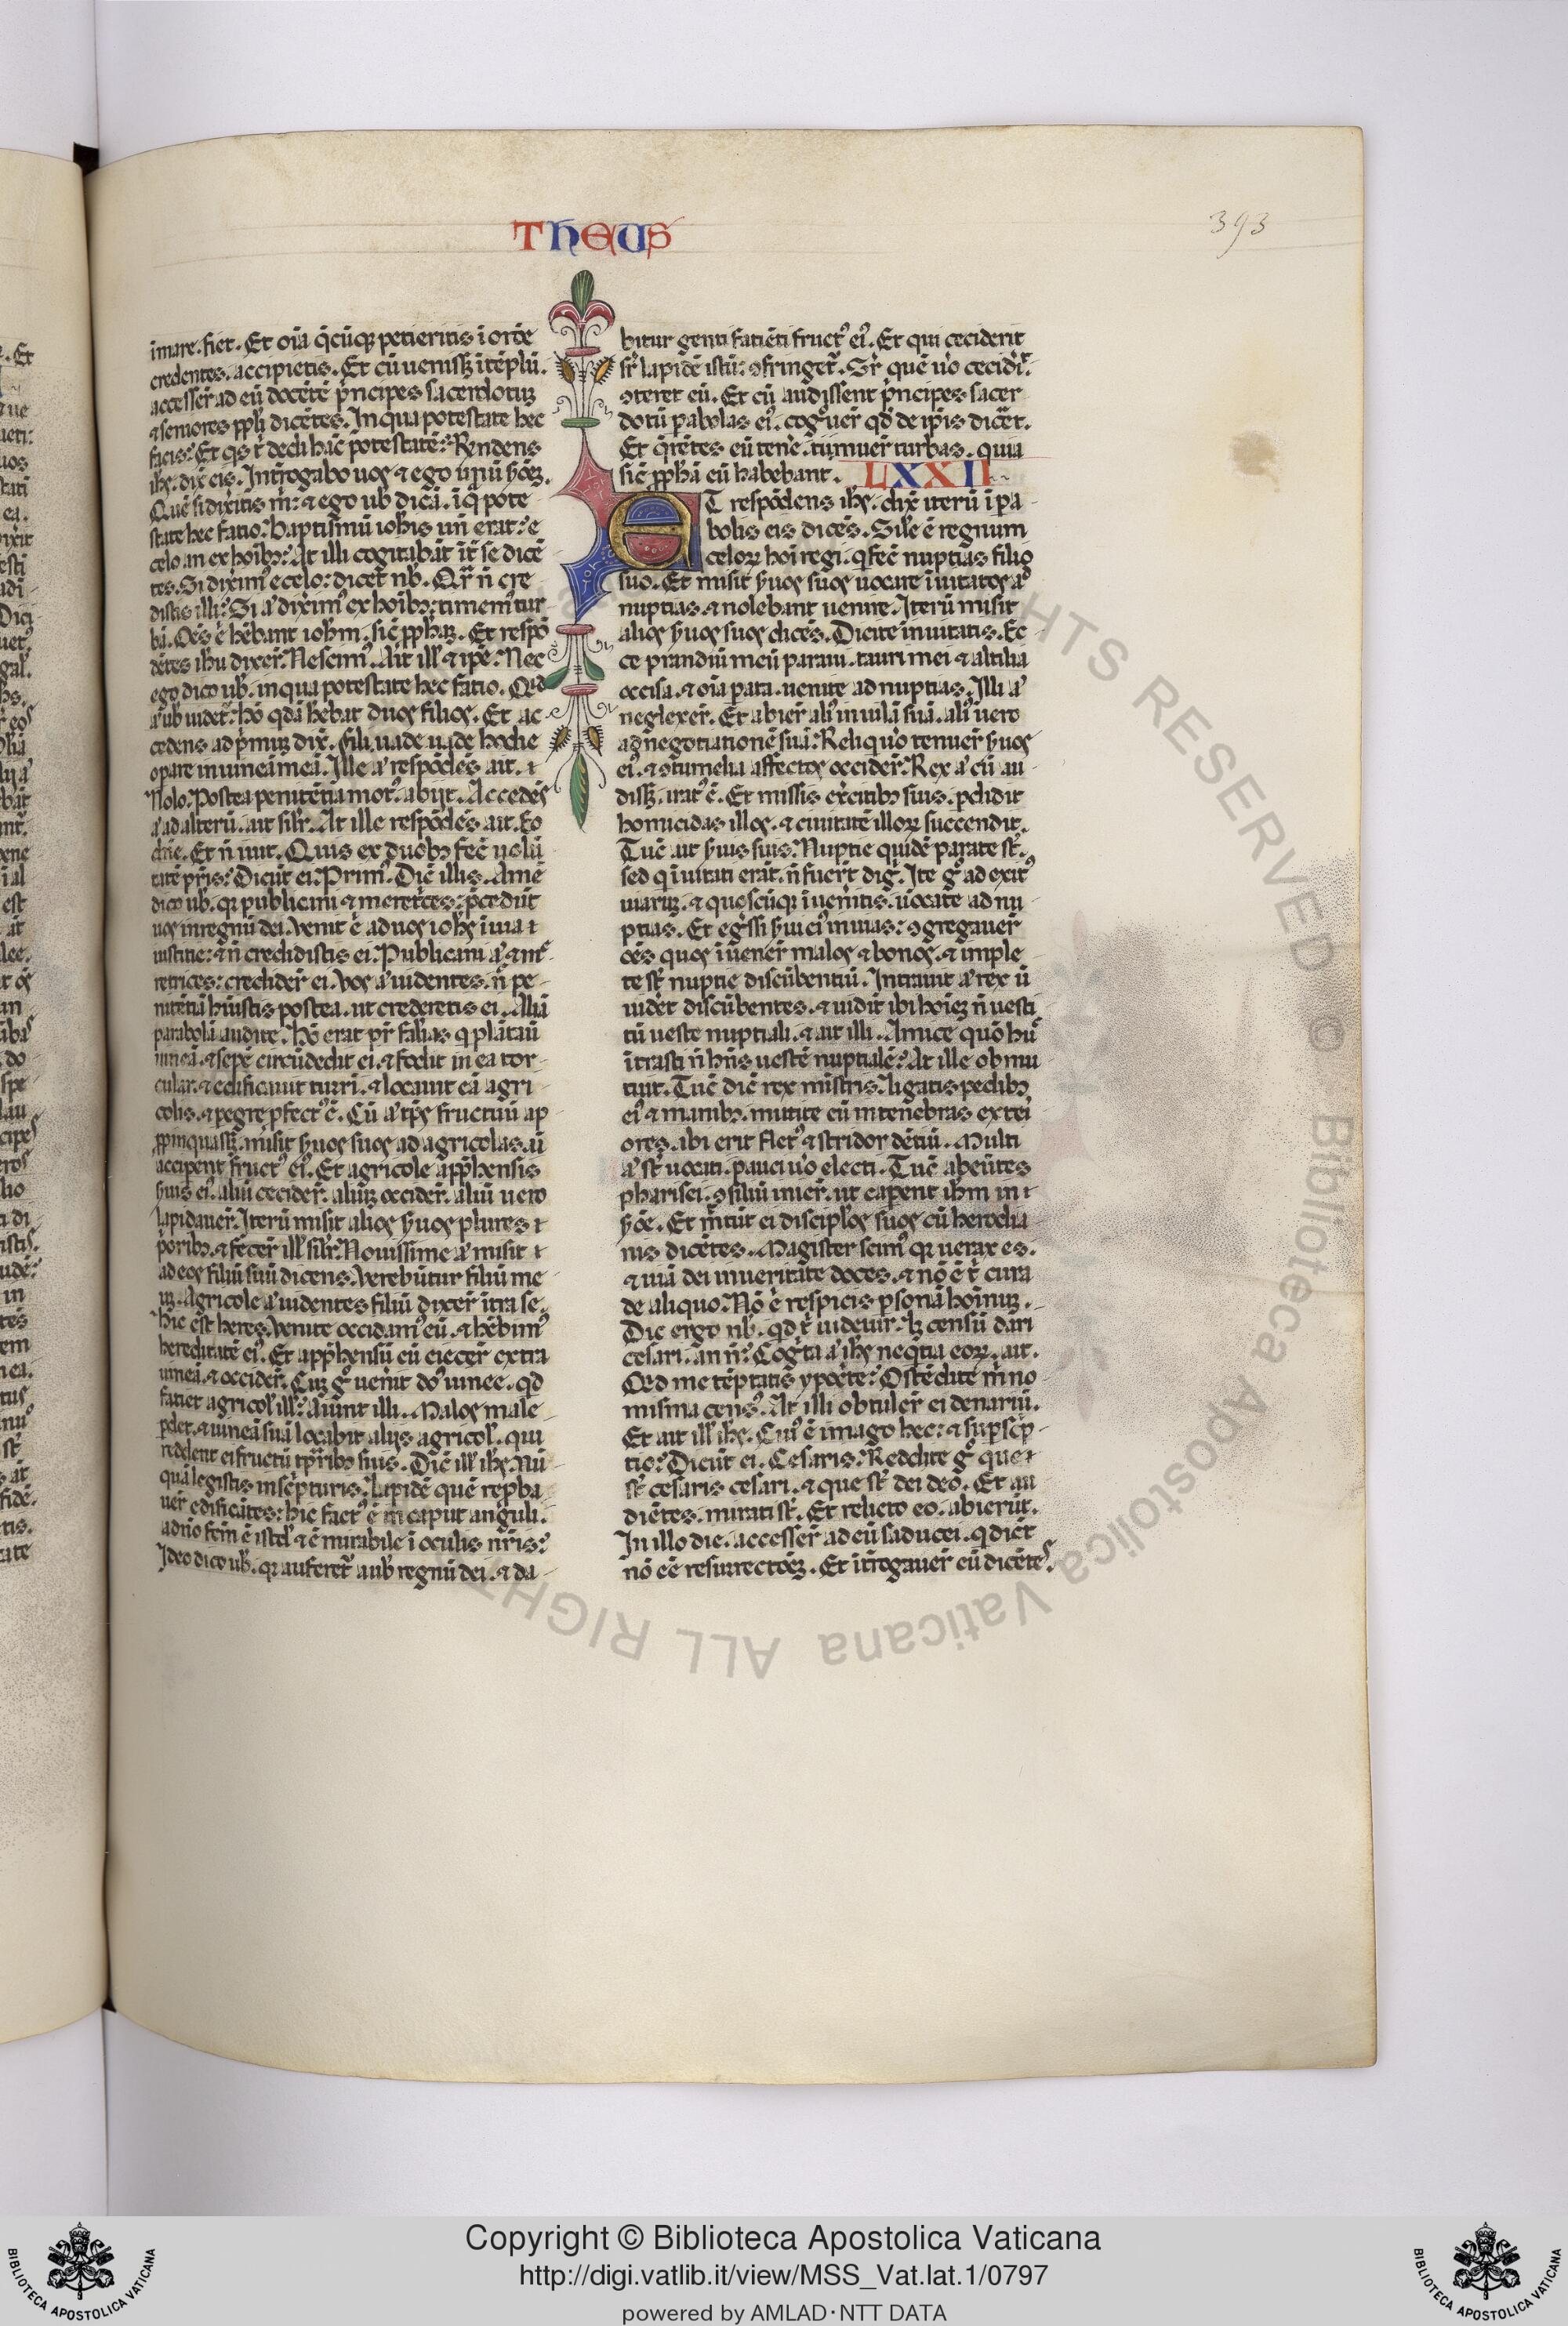 THEUS
393
imare. fiet. Et oīa q̄cūqꝫ petieritis ī orōe
credentes. accipietis. Et cū uenissꝫ ī tēplū.
accesser̄ ad eū docētē p̄ncipes sacerdotuꝫ
⁊ seniores ppl̄i dicētes. In qua potestate hec
facis? Et qs t̄ dedit hāc potestatē? Rn̄dens
ih̄s. dix̄ eis. Int̄rogabo uos ⁊ ego unū
Quē si dix̄itis m̄. ⁊ ego ub̄ dicā. ī q̄ pote
state hec facio. Baptismū ioh̄is un̄ erat? e
celo an ex hoībꝫ? At illi cogitabāt īt̄ se dicē
tes. Si dixim᷒ e celo: dicet nb̄. Qr̄ n̄ cre
distis illi? Si a᷒ dixim᷒ ex hoībꝫ: timem᷒ tur
bā. Oēs .n. hēbant ioh̄m. sic̄ pph̄aꝫ. Et respō
dētes ih̄u dixer̄. Nescim᷒. Ait ill̄ ⁊ ip̄e. Nec
ego dico ub̄. in qua potestate hec facio. Qd
a᷒ ub̄ uidet̄? Hō qdā hēbat duos filios. Et ac
cedens ad p̄muꝫ dix̄. fili uade uade hodie
opare in uinea mea. Ille a᷒ respōdēs ait.
Nolo. Postea penitētia mot᷒. abijt. Accedēs
a᷒ ad alterū. ait sil̄r. At ille respōdēs ait. Eo
dn̄e. Et n̄ iuit. Quis ex duobꝫ fec̄ uolū
tatē pr̄is? Dicūt ei. Prim᷒. Dic̄ illis. Amē
dico ub̄. qꝛ publicani ⁊ meret̄ces: p̄cedūt
uos in regnū dei. Venit .n. ad uos ioh̄s ī uia
iusticie: ⁊ n̄ credidistis ei. Publicani a᷒ ⁊ me
retrices: credider̄ ei. Vos a᷒ uidentes. n̄ pe
nitētiā h̄uistis postea. ut crederetis ei. Aliā
parabolā audite. Hō erat pr̄ fal̄ias q plātaū
uineā. ⁊ sepē circūdedit ei. ⁊ fodit in ea tor
cular. ⁊ edificauit turrī. ⁊ locauit eā agri
colis. ⁊ pegre pfect᷒ ē. Cū a᷒ tp̄s fructuū ap
ppinquassꝫ. misit s̄uos suos ad agricolas. ū
acciperent fruct᷒ ei᷒. Et agricole app̄hensis
s̄uis ei᷒. aliū cecider̄. aliuꝫ occider̄. aliū uero
lapidauer̄. Iterū misit alios s̄uos plures
p̄oribꝫ. ⁊ fecer̄ ill̄ sil̄r. Nouissime a᷒ misit
ad eos filiū suū dicens. Verebūtur filiū me
uꝫ. Agricole a᷒ uidentes filiū dixer̄ ītra se.
hic est heres. Venite occidam᷒ eū. ⁊ hēbim᷒
hereditatē ei᷒. Et app̄hensū eū eiecer̄ extra
uineā. ⁊ occider̄. Cuꝫ g᷒ uenit do᷒ uinee. qd
faciet agricol̄ ill̄? Aiunt illi. Malos male
pdet. ⁊ uineā suā locabit alijs agricol̄. qui
reddent ei fructū tp̄ribꝫ suis. Dic̄ ill̄ ih̄s. Nū
quā legistis in sc̄pturis. Lapidē quē rep̄ba
uer̄ edificātes: hic fact᷒ ē in caput anguli.
a dn̄o fcm̄ ē istd̄ ⁊ ē mirabile ī oculis nr̄is?
Ideo dico ub̄. qꝛ auferet̄ a ub̄ regnū dei. ⁊ da
bitur genti faciēti fruct᷒ ei᷒. Et qui ceciderit
sr̄ lapidē istū: ꝯfringet̄. Sr̄ quē u᷒o cecidit̄.
ꝯteret eū. Et cū audissent p̄ncipes sacer
dotū parabolas ei᷒. cog᷒uer̄ qd̄ de ip̄is dicēt.
Et q̄rētes eū tenē. timuer̄ turbas. quia
sic̄ pph̄ā eū habebant. LXXII
ET respōdens ih̄s. dix̄ iterū ī pa
bolis eis dicēs. Sil̄e ē regnum
celoꝝ hoī regi. q fec̄ nuptias filio
suo. Et misit s̄uos suos uocare īuitatos ad
nuptias. ⁊ nolebant uenire. Iterū misit
alios s̄uos suos dicēs. Dicite inuitatis. Ec
ce prandiū meū paraui. tauri mei ⁊ altilia
occisa. ⁊ oīa parata. uenite ad nuptias. Illi a᷒
neglexer̄. Et abier̄ ali᷒ in uillā suā. ali᷒ uero
ad negotiationē suā. Reliq u᷒o tenuer̄ s̄uos
ei᷒. ⁊ ꝯtumelia affectos occider̄. Rex a᷒ cū au
dissꝫ. irat᷒ ē. Et missis exercitibꝫ suis. pdidit
homicidas illos. ⁊ ciuitatē illoꝝ succendit.
Tuc̄ ait s̄uis suis. Nuptie quidē parate st̄.
sed q īuitati erāt. n̄ fuer̄t dig᷒. Ite g᷒ ad exit᷒
uiaruꝫ. ⁊ quoscūqꝫ īueneritis. uocate ad nu
ptias. Et eḡssi s̄ui ei᷒ in uias: ꝯgregauer̄
oēs quos īuener̄ malos ⁊ bonos. ⁊ imple
te st̄ nuptie discūbentiū. Intrauit a᷒ rex ū
uidet discūbentes. ⁊ uidit ibi hoīeꝫ n̄ uesti
tū ueste nuptiali. ⁊ ait illi. Amice quō hu᷒
ītrasti n̄ hn̄s uestē nuptialē? At ille obmu
tuit. Tuc̄ dic̄ rex mīstris. ligatis pedibꝫ
ei᷒ ⁊ manibꝫ. mittite eū in tenebras exteri
ores. ibi erit flet᷒ ⁊ stridor dētiū. Multi
a᷒ st̄ uocati. pauci u᷒o electi. Tuc̄ abeūtes
pharisei. ꝯsiliū inier̄. ut caperent ih̄m in
s̄mōe. Et mittūt ei discipl̄os suos cū herodia
nis dicētes. Magister scim᷒ qꝛ uerax es.
⁊ uiā dei in ueritate doces. ⁊ nō ē t̄ cura
de aliquo. Nō .n. respicis psonā hoīnuꝫ.
Dic ergo nb̄. qd t̄ uidetur. lꝫ censū dari
cesari. an n̄? Coḡta a᷒ ih̄s neqtia eoꝝ. ait.
Qid me tēptatis ypoc̄te? Ostēdite m̄ no
misma cens᷒. At illi obtuler̄ ei denariū.
Et ait ill̄ ih̄s. Cui᷒ ē imago hec: ⁊ supsc̄p
tio? Dicūt ei. Cesaris. Reddite g᷒ que
st̄ cesaris cesari. ⁊ que st̄ dei deo. Et au
diētes. mirati st̄. Et relicto eo. abierūt.
In illo die. accesser̄ ad eū saducei. q dicūt
nō eē resurrectōeꝫ. Et īt̄rogauer̄ eū dicētes
Copyright © Biblioteca Apostolica Vaticana
http://digi.vatlib.it/view/MSS_Vat.lat.1/0797
powered by AMLAD·NTT DATA
BIBLIOTECA APOSTOLICA VATICANA
BIBLIOTECA APOSTOLICA VATICANA